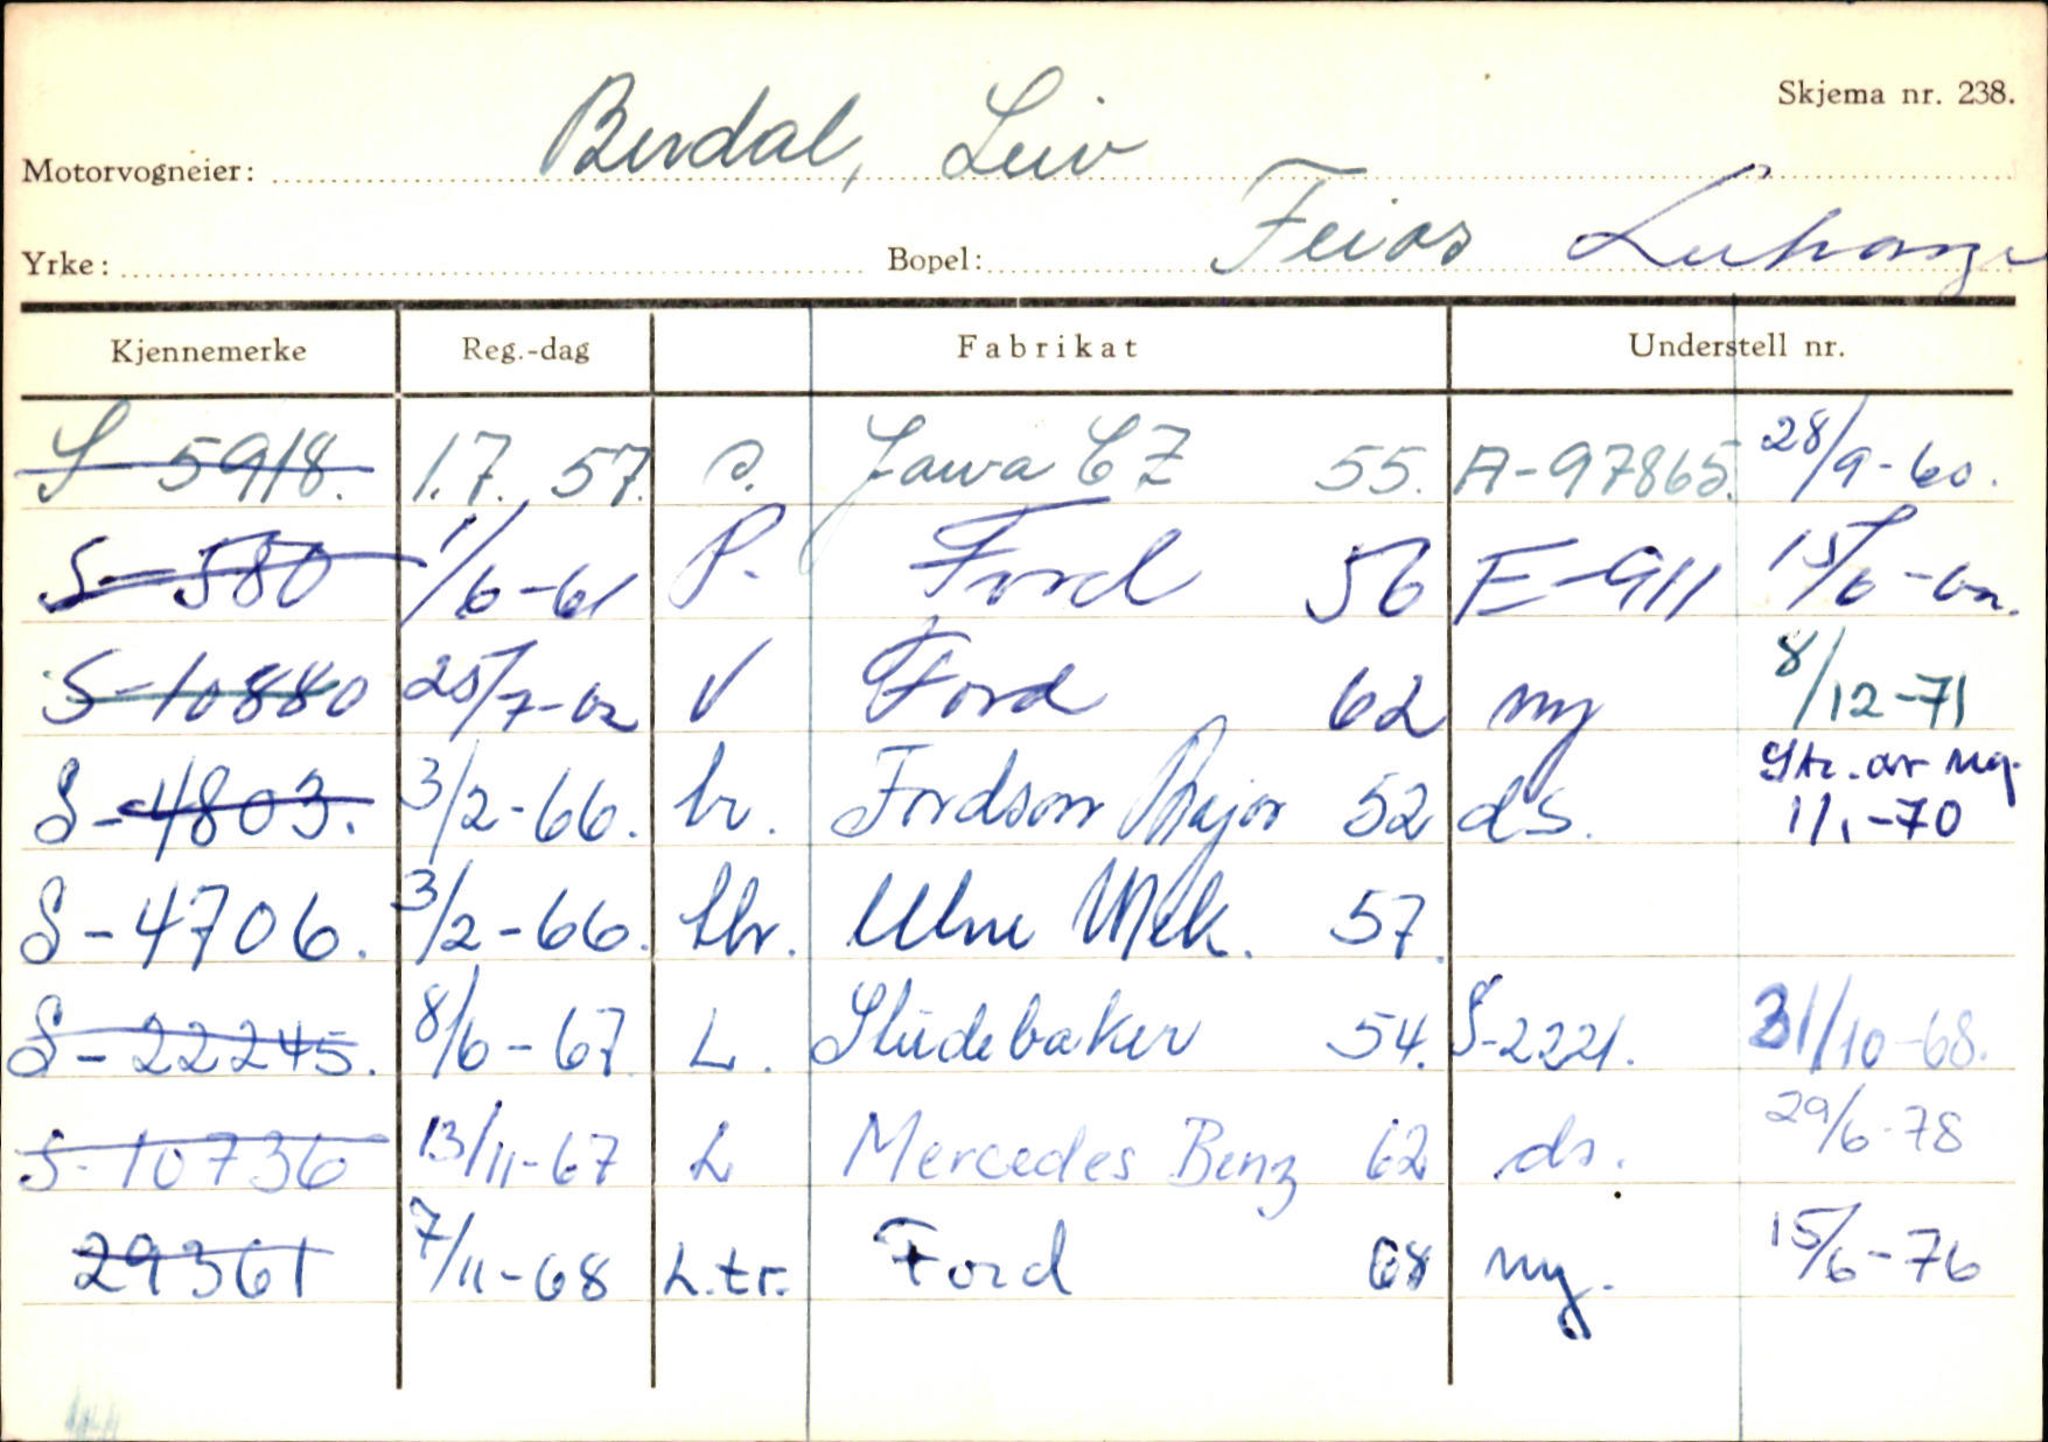 Skjema nr. 238.
Motorvogneier: Berdal, Leiv
Yrke: Bopel: Feios Leikanger
Kjennemerke Reg.-dag Fabrikat Understell nr.
S-5918. 1.7. 57. Jawa CZ 55. A-97865. 28/9-60.
S-580 1/6-61 P. Ford 56 F-911 15/6-62.
S-10880 25/7-62 V Ford 62 ny 8/12-71
S-4803. 3/2-66. tr. Fordson Major 52 ds. Str. av reg. 1/1-70
S-4706. 3/2-66. thr. Mek. 57.
S-22245. 8/6-67. L. Studebaker 54. S-2221. 31/10-68.
S-10736 13/11-67 L Mercedes Benz 62 ds. 29/6-78
29361 7/11-68 L.tr. Ford 68 ny. 15/6-76